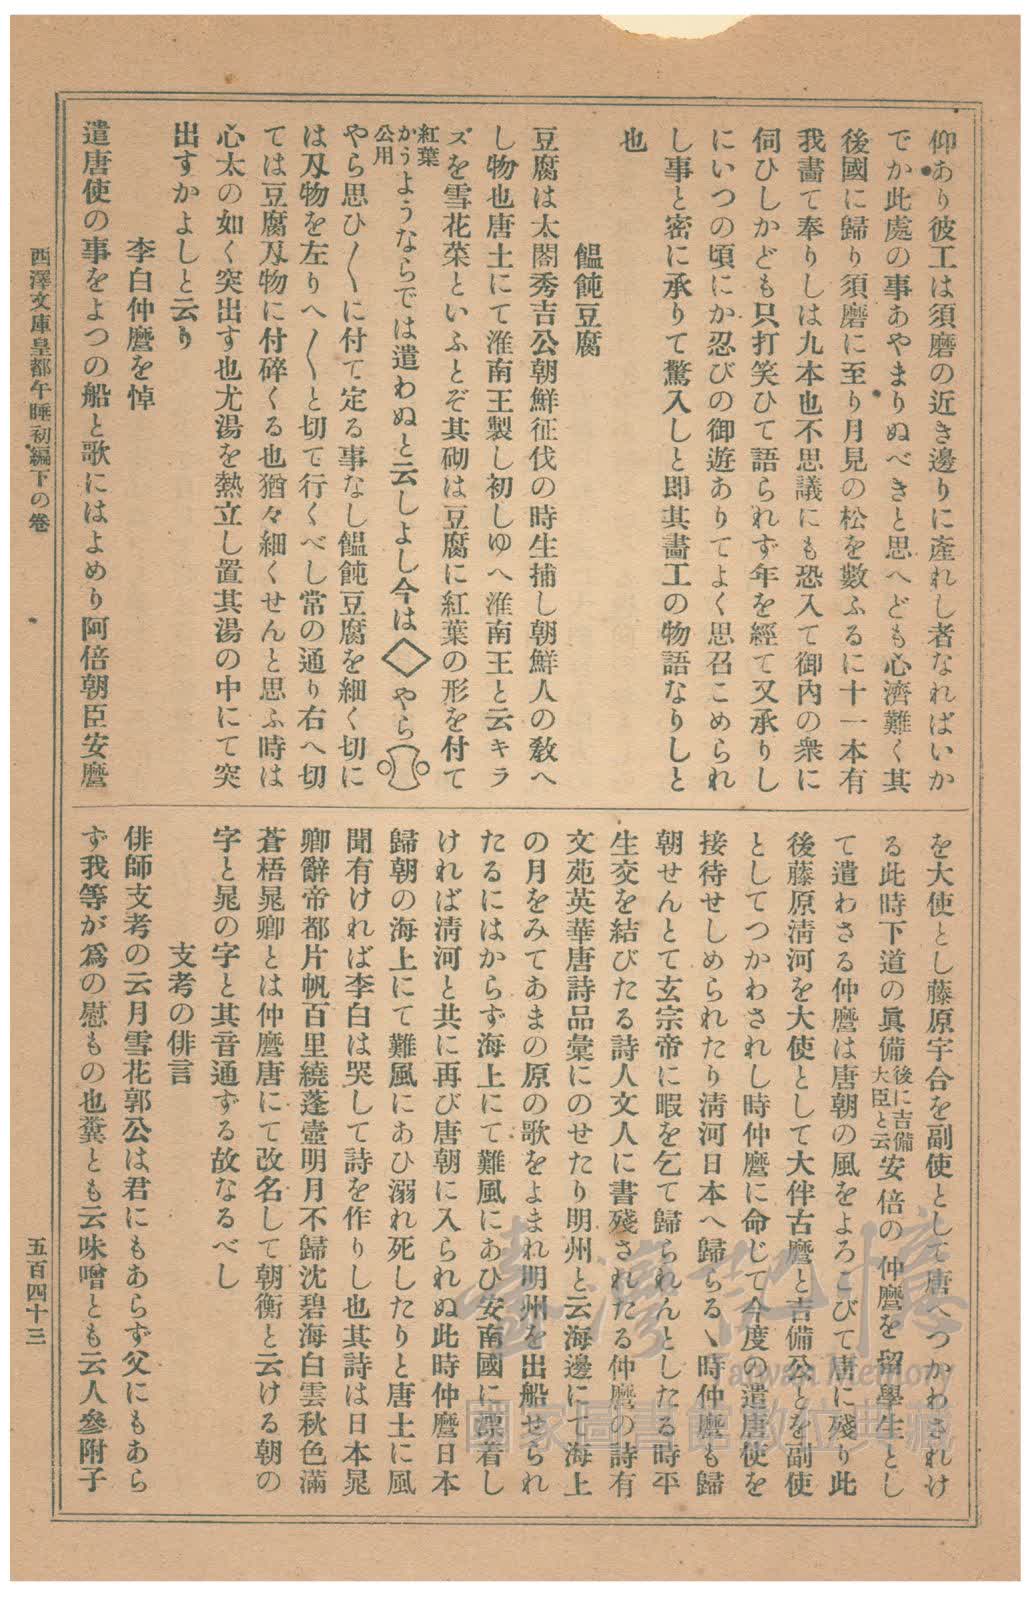 仰あり彼工は須磨の近き邊りに產れし者なればいか
でか此處の事あやまりぬべきと思へども心濟難く其
後國に歸り須磨に至り月見の松を數ふるに十一本有
我畵て奉りしは九本也不思議にも恐入て御內の衆に
伺ひしかども只打笑ひて語られず年を經て又承りし
にいつの頃にか忍びの御遊ありてよく思召こめられ
し事と密に承りて驚入しと卽其畵工の物語なりしと
也
饂飩豆腐
豆腐は太閤秀吉公朝鮮征伐の時生捕し朝鮮人の敎へ
し物也唐土にて淮南王製し初しゆへ淮南王と云キラ
ズを雪花菜といふとぞ其砌は豆腐に紅葉の形を付て
紅葉かうようならでは遣わぬと云しよし今は◇やら
公用
やら思ひ〱に付て定る事なし饂飩豆腐を細く切に
は刄物を左りへ〱と切て行くべし常の通り右へ切
ては豆腐刄物に付碎くる也猶々細くせんと思ふ時は
心太の如く突出す也尤湯を熱立し置其湯の中にて突
出すかよしと云り
李白仲麿を悼
遣唐使の事をよつの船と歌にはよめり阿倍朝臣安麿
を大使とし藤原宇合を副使として唐へつかわされけ
る此時下道の眞備後に吉備大臣と云安倍の仲麿を留學生とし
て遣わさる仲麿は唐朝の風をよろこびて唐に殘り此
後藤原淸河を大使として大伴古麿と吉備公とを副使
としてつかわされし時仲麿に命じて今度の遣唐使を
接待せしめられたり淸河日本へ歸らるゝ時仲麿も歸
朝せんとて玄宗帝に暇を乞て歸られんとしたる時平
生交を結びたる詩人文人に書殘されたる仲麿の詩有
文苑英華唐詩品彙にのせたり明州と云海邊にて海上
の月をみてあまの原の歌をよまれ明州を出船せられ
たるにはからず海上にて難風にあひ安南國に漂着し
ければ淸河と共に再び唐朝に入られぬ此時仲麿日本
歸朝の海上にて難風にあひ溺れ死したりと唐土に風
聞有ければ李白は哭して詩を作りし也其詩は日本晁
卿辭帝都片帆百里繞蓬壺明月不歸沈碧海白雲秋色滿
蒼梧晁卿とは仲麿唐にて改名して朝衡と云ける朝の
字と晁の字と其音通ずる故なるべし
支考の俳言
俳師支考の云月雪花郭公は君にもあらず父にもあら
ず我等が爲の慰もの也糞とも云味噌とも云人參附子
西澤文庫皇都午睡初編下の卷
五百四十三
臺灣記憶
Taiwan Memory
國家圖書館數位典藏